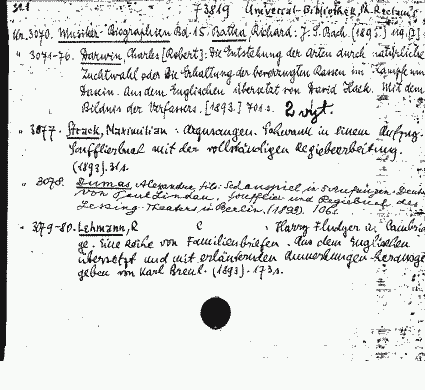 73819 Universal-Bibliothek, Ph. Reclam's
Nr. 3070. Musiker-Biographien Bd. 15. Batka, Richard: J. S. Bach. [1893] 119 S.
" 3071-76. Darwin, Charles [Robert]: Die Entstehung der Arten durch natürliche
Zuchtwahl oder Die Erhaltung der bevorzugten Rassen im Kampfe um
Dasein. Aus dem Englischen übersetzt von David Haek. Mit dem
Bildnis der Verfassers. [1893.] 701 S. 2 vyt.
" 3077. Strack, Maximilian: Schwank in einem Aufzug.
Soufflierbuch mit der vollständigen Regiebearbeitung.
(1893). 31 S.
" 3078. Dumas, Alexandre, fils: Schauspiel in 5 Aufzügen. Deutsch
von Paul Lindau. Soufflier und Regiebuch des
Lessing-Theaters in Berlin. (1893). 106 S.
" 3079-80. Lehmann, R C , Harry Fludyer in Cambrid
ge. Eine Reihe von Familienbriefen. Aus dem Englischen
übersetzt und mit erläuternden Anmerkungen herausge
geben von Karl Breul. (1893). 173 S.